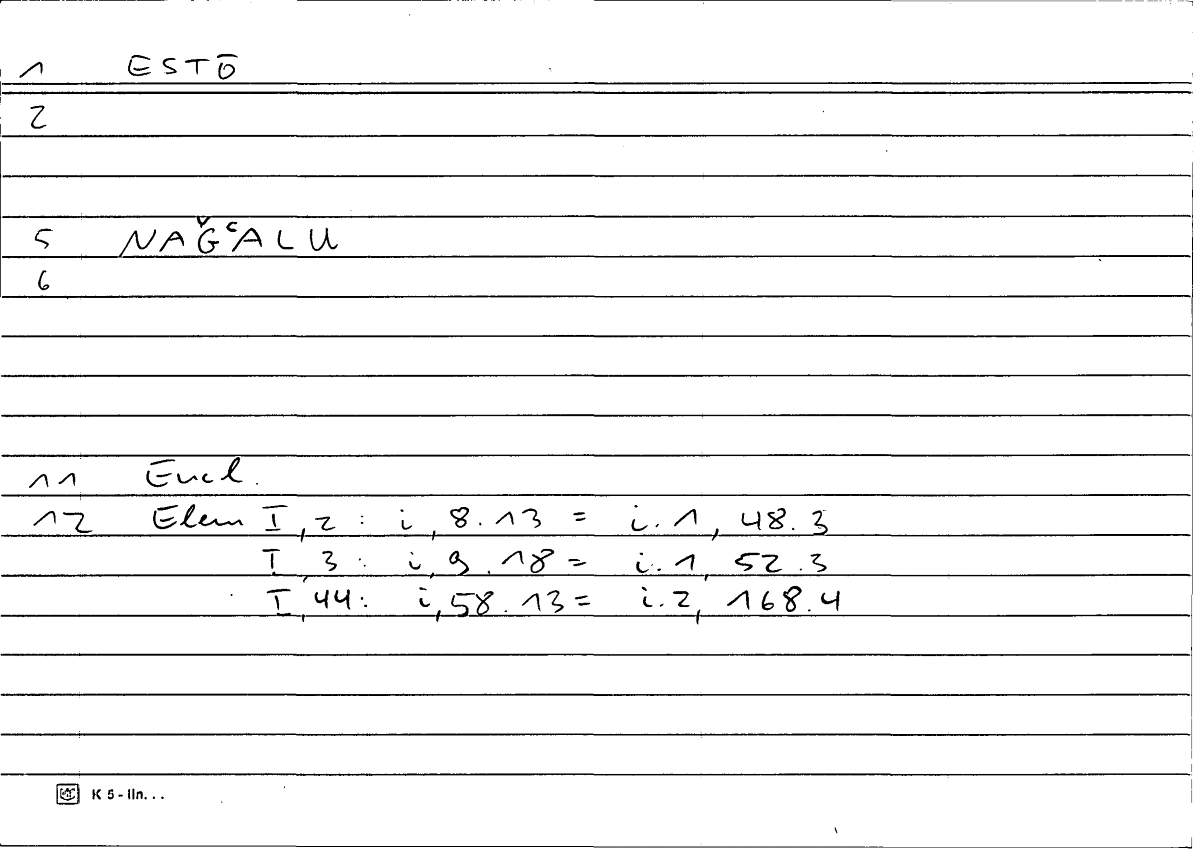 1 ESTŌ
2
5 NAǦʿALU
6
11 Eucl.
12 Elem I,2 : i,8.13 = i.1,48.3
I,3 : i,9.18 = i.1,52.3
I,44: i,58.13 = i.2,168.4
K 5 - lin...